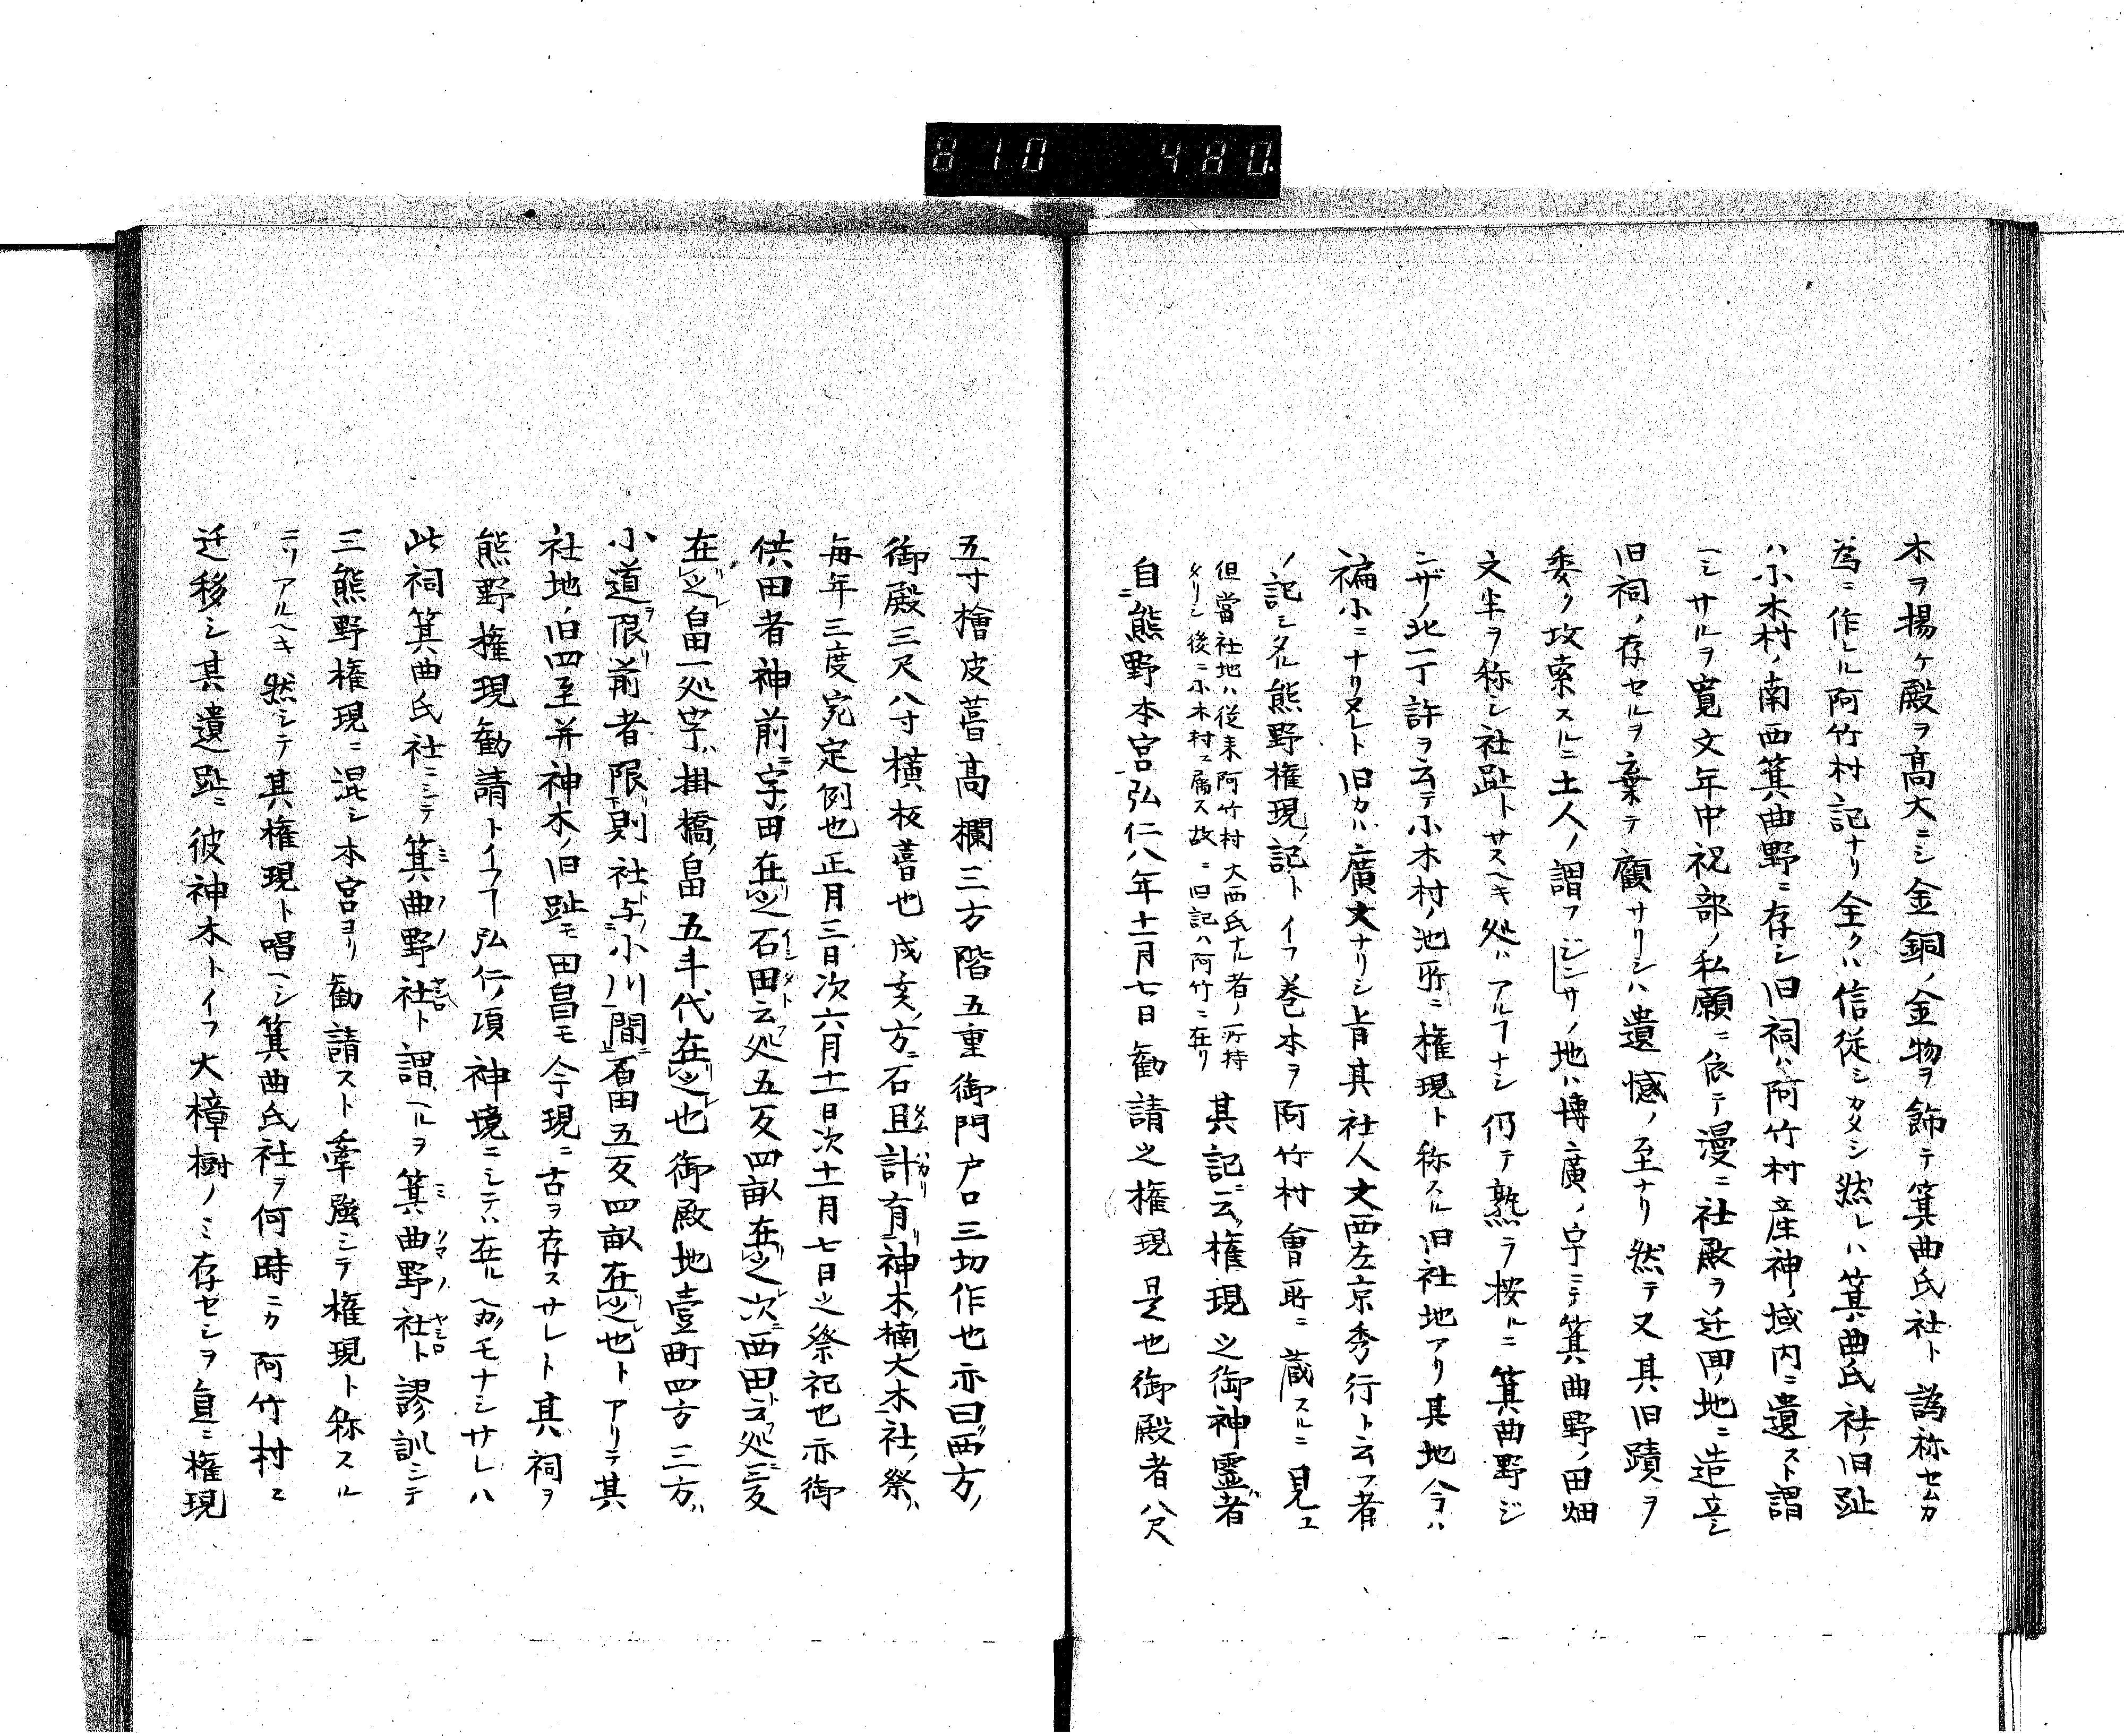 810 480.
木ヲ揚ケ殿ヲ高大ニシ金銅ノ金物ヲ飾テ箕曲氏社ト謟称セムカ
為ニ作レル阿竹村記ナリ全クハ信従シカタシ然レハ箕曲氏社ノ旧趾
ハ小木村ノ南西箕曲野ニ存シ旧祠ハ阿竹村産神ノ域内ニ遺スト謂
ヘシサルヲ寛文年中祝部ノ私願ニ依テ漫ニ社殿ヲ迁囬ノ地ニ造立シ
旧祠ノ存セルヲ棄テ顧サリシハ遺憾ノ至ナリ然テ又其旧蹟ヲ
委ク攻索スルニ土人ノ謂フジンサノ地ハ博廣ノ字ニテ箕曲野ノ田畑
文半ヲ称シ社趾トサスヘキ処ハアルフナシ仍テ熟ラ按ルニ箕曲野ジ
ンザノ北一丁許ヲ云テ小木村ノ池所ニ権現ト称スル旧社地アリ其地今ハ
褊小ニナリヌレト旧カハ廣大ナリシ旨其社人大西左京秀行ト云フ者
ノ記シタル熊野権現ノ記トイフ巻本ヲ阿竹村會所ニ蔵スルニ見エ
但當社地ハ従来阿竹村大西氏ナル者ノ所持
タリシ後ニ小木村ニ属ス故ニ旧記ハ阿竹ニ在リ
其記ニ云権現之御神霊者
自熊野本宮弘仁八年十一月七日勧請之権現是也御殿者八尺
五寸檜皮葺高欄三方階五重御門戸口三切作也亦曰西方ノ
御殿三尺八寸横板葺也戌亥ノ方ニ石且計有神木楠大木社ノ祭ハ
毎年三度宛定例也正月三日次六月十一日次十一月七日之祭祀也亦御
供田者神前ニ字ノ田在之石田ト云処五反四畝在之次ニ西田ト云処ニ三反
在之畠一処字ハ掛橋畠五斗代在之也御殿地壹町四方三方ハ
小道ヲ限リ前者限則社与小川ノ間ニ畠田五反四畝在之也トアリテ其
社地ノ旧四至并神木ノ旧趾モ田畠モ今現ニ古ヲ存スサレト其祠ヲ
熊野権現勧請トイフフ弘仁ノ頃神境ニシテハ在ルヘカノモナシサレハ
此祠箕曲氏社ニシテ箕曲野社ト謂ヘルヲ箕曲野社ト謬訓シテ
三熊野権現ニ混シ本宮ヨリ勧請スト牽強シテ権現ト称スル
ニリアルヘキ然シテ其権現ト唱ヘシ箕曲氏社ヲ何時ニカ阿竹村エ
迁移シ其遺趾ニ彼神木トイフ大樟樹ノミ存セシヲ直ニ権現